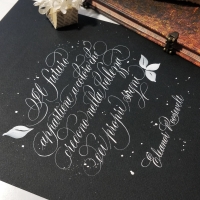 Il futuro
appartiene a coloro che
credono nella bellezza
dei propri sogni
Eleanor Roosevelt